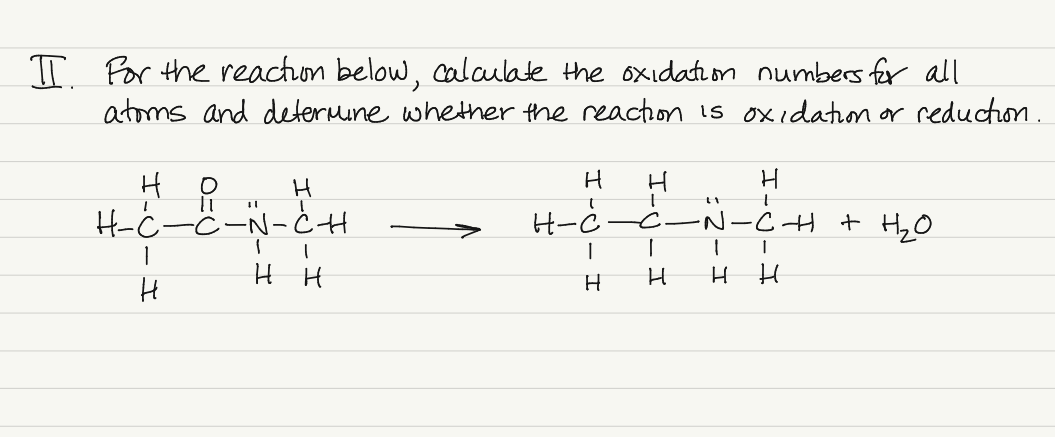 II. For the reaction below, calculate the oxidation numbers for all
atoms and determine whether the reaction is oxidation or reduction.
H O H H H H
H-C-C-N-C-H → H-C-C-N-C-H + H₂O
H H H H H H H